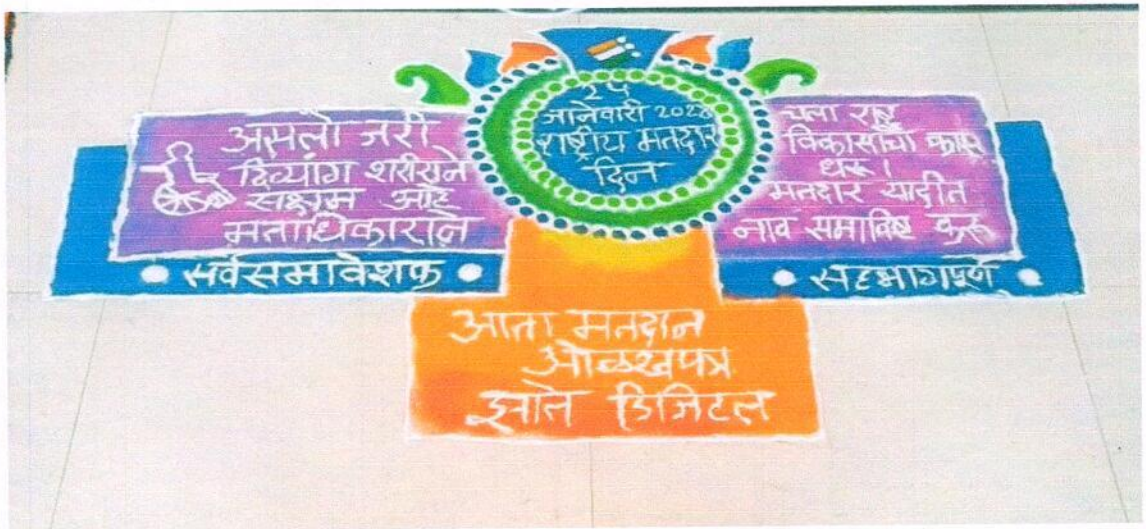 २५
जानेवारी
राष्ट्रीय मतदार
दिन
असलो जरी
दिव्यांग शरीराने
सक्षम आहे
मताधिकाराने
• सर्वसमावेशक •
चला राष्ट्र
विकासाची कास
धरू।
मतदार यादीत
नाव समाविष्ट करू
• सहभागपूर्ण •
आता मतदान
ओळखपत्र
झाले डिजिटल